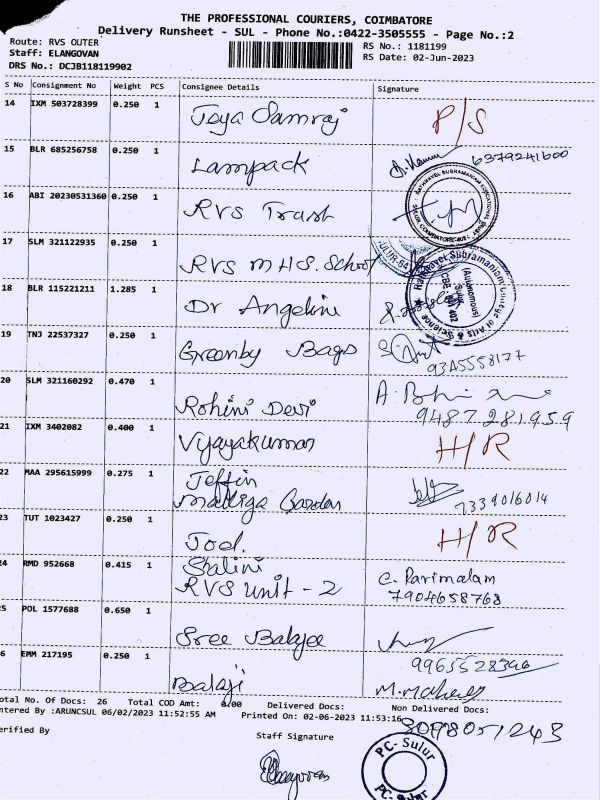 THE PROFESSIONAL COURIERS, COIMBATORE
Delivery Runsheet - SUL - Phone No.:0422-3505555 - Page No.:2
Route: RVS OUTER
RS No.: 1181199
Staff: ELANGOVAN
RS Date: 02-Jun-2023
DRS No.: DCJB118119902
S No Consignment No Weight PCS Consignee Details Signature
14 IXM 503728399 0.250 1 Jeya Samraj P/S
15 BLR 685256758 0.250 1 Lampack 6379241600
16 ABI 20230531360 0.250 1 RVS Trust
17 SLM 321122935 0.250 1 RVS MHS. School
18 BLR 115221211 1.285 1 Dr Angelini
19 TNJ 22537327 0.250 1 Greenby Bags
20 SLM 321160292 0.470 1 Rohini Devi
9487281959
21 IXM 3402082 0.400 1 Vijayakumar H/R
22 MAA 295615999 0.275 1 Jeffin
Malliga Garden 7339016014
23 TUT 1023427 0.250 1 Joel. H/R
24 RMD 952668 0.415 1 Shalini
RVS Unit - 2 C. Parimalam
7904658768
5 POL 1577688 0.650 1 Sree Balajee
6 EMM 217195 0.250 1 Balaji
otal No. Of Docs: 26 Total COD Amt: 0.00 Delivered Docs: Non Delivered Docs:
ntered By :ARUNCSUL 06/02/2023 11:52:55 AM Printed On: 02-06-2023 11:53:16
erified By
Staff Signature
Elangovan
PC- Sulur
PC- Sulur